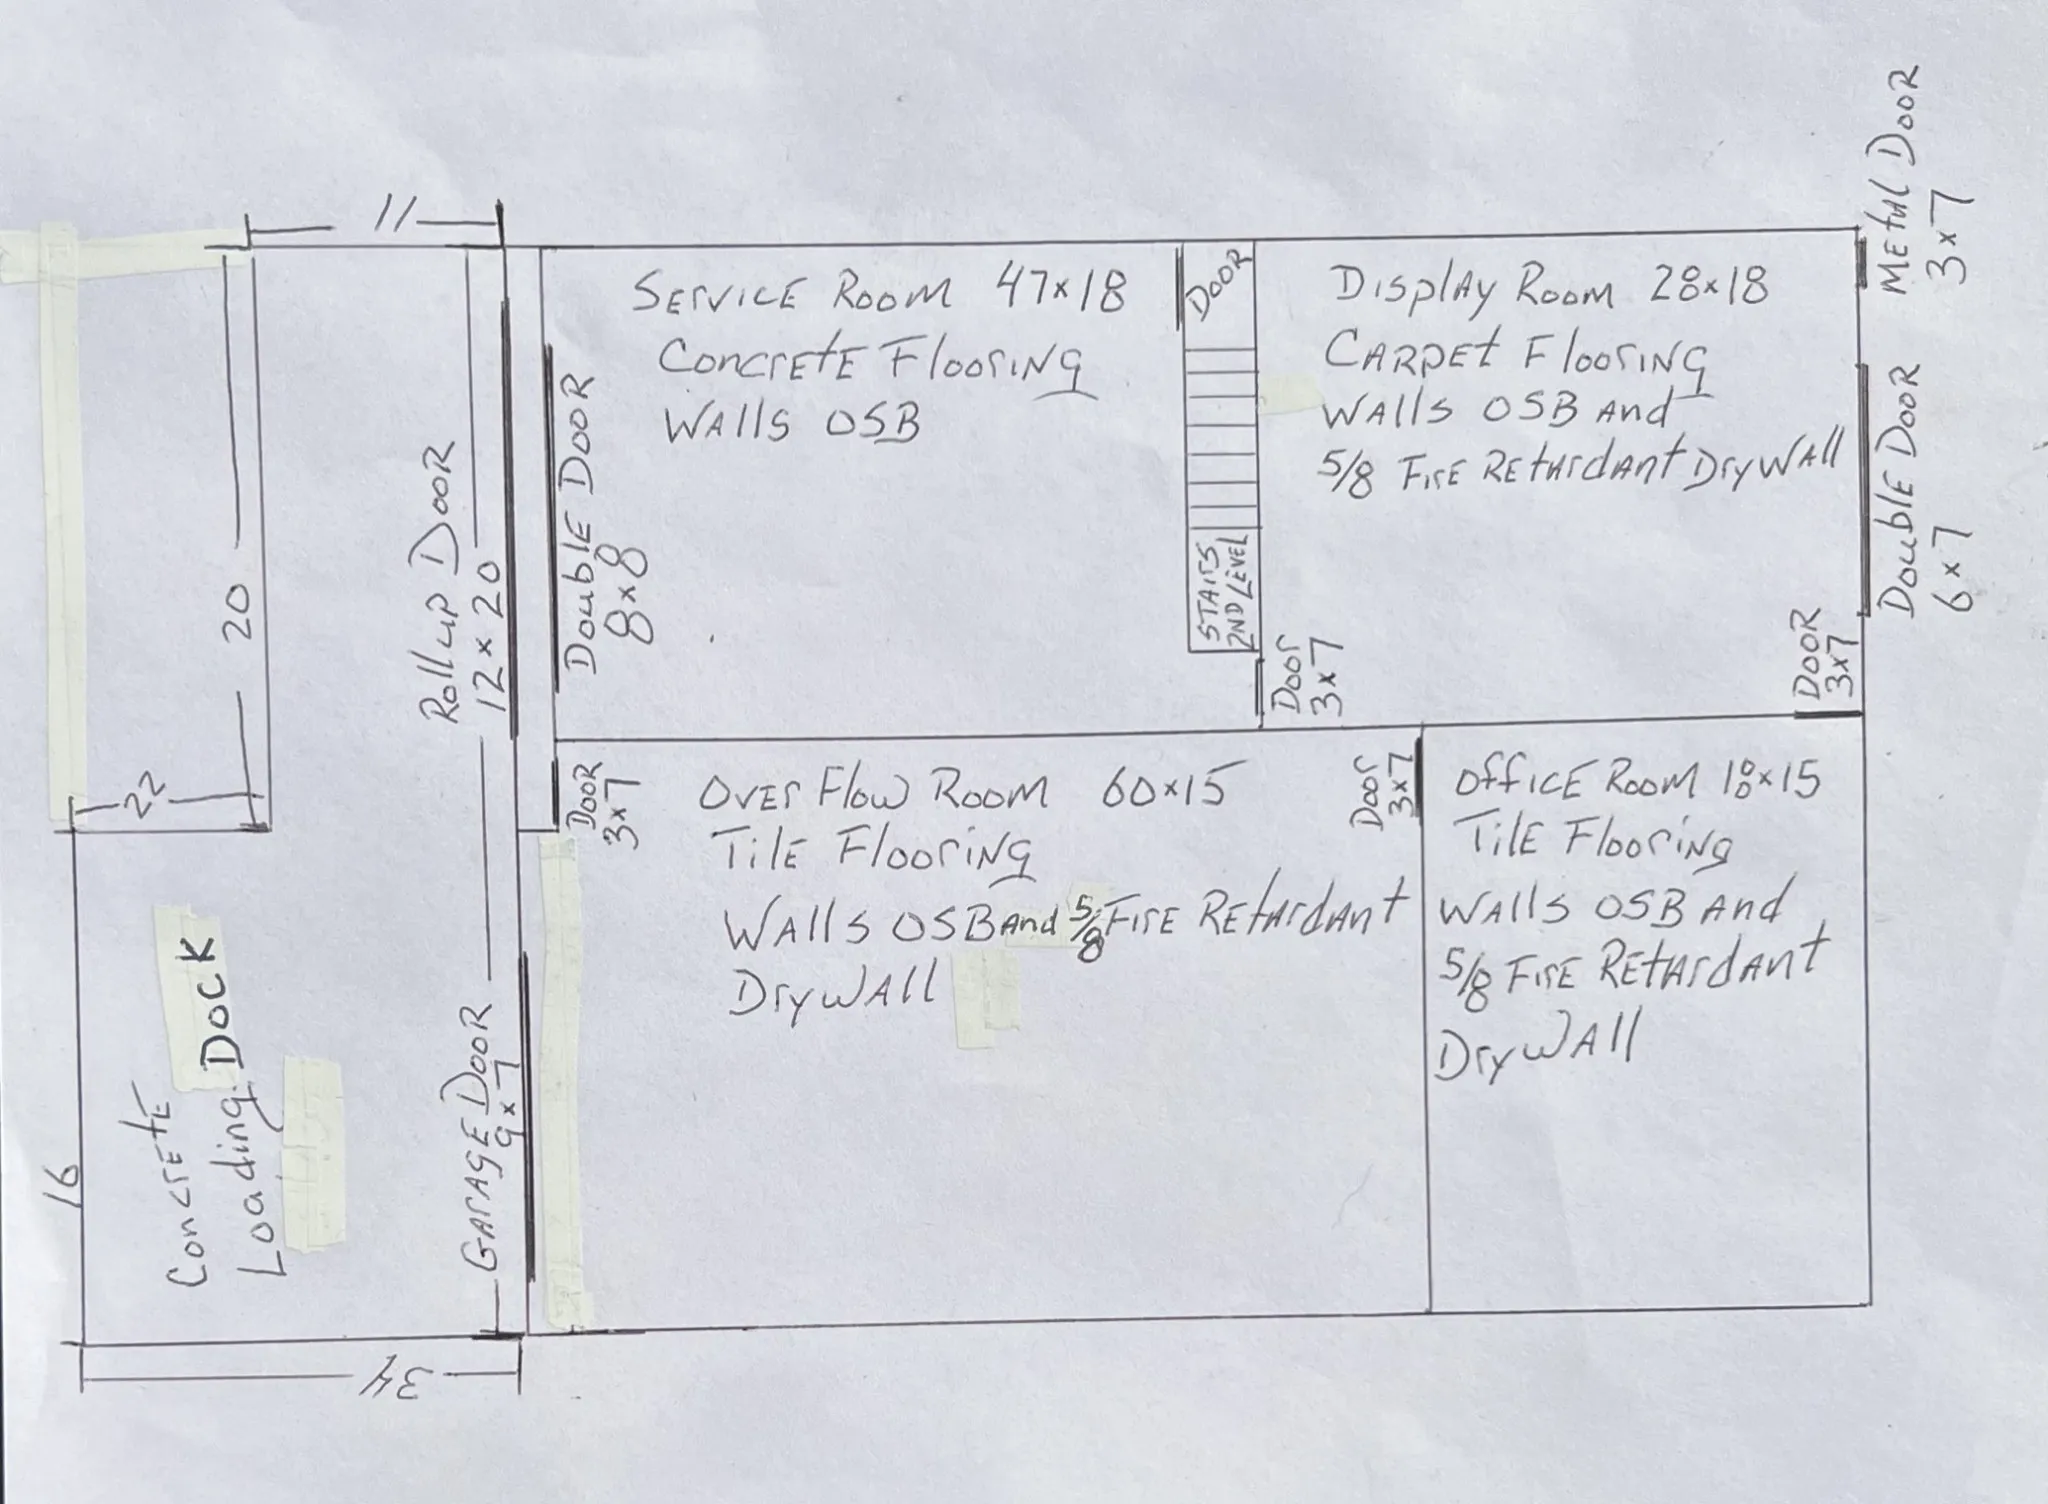 11
20
22
16
34
Concrete
Loading Dock
Rollup Door
12 x 20
Garage Door
9 x 7
Double Door
8 x 8
Service Room 47x18
Concrete Flooring
Walls OSB
Door
Stairs
2nd Level
Door
3x7
Display Room 28x18
Carpet Flooring
Walls OSB And
5/8 Fire Retardant Drywall
Metal Door
3x7
Double Door
6x7
Door
3x7
Door
3x7
Over Flow Room 60x15
Tile Flooring
Walls OSB And 5/8 Fire Retardant
Drywall
Door
3x7
Office Room 18x15
Tile Flooring
Walls OSB And
5/8 Fire Retardant
Drywall